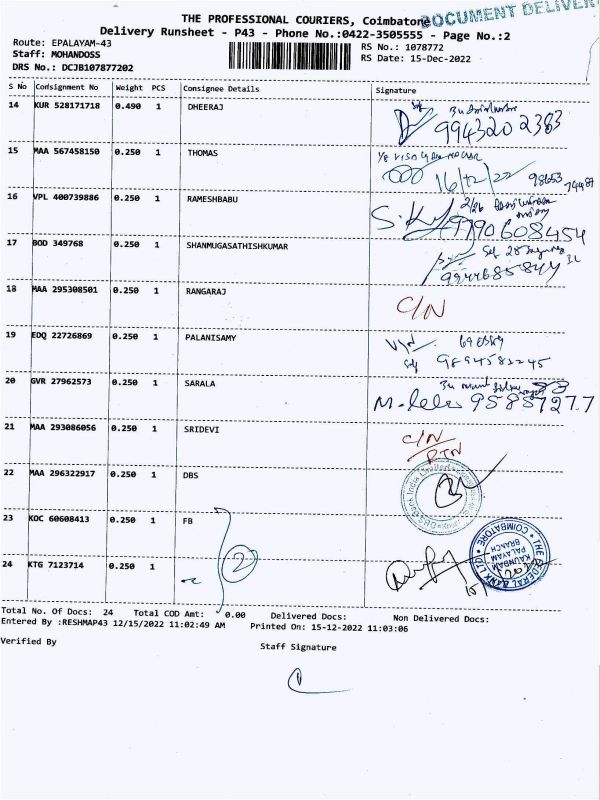 THE PROFESSIONAL COURIERS, Coimbatore
DOCUMENT DELIVER
Delivery Runsheet - P43 - Phone No.:0422-3505555 - Page No.:2
Route: EPALAYAM-43
RS No.: 1078772
Staff: MOHANDOSS
RS Date: 15-Dec-2022
DRS No.: DCJB107877202
S No Consignment No Weight PCS Consignee Details Signature
14 KUR 528171718 0.490 1 DHEERAJ
9943202383
15 MAA 567458150 0.250 1 THOMAS
16/12/22 98653
74487
16 VPL 400739886 0.250 1 RAMESHBABU
9790608454
17 BOD 349768 0.250 1 SHANMUGASATHISHKUMAR
9244685844
18 MAA 295308501 0.250 1 RANGARAJ
C/N
19 EDQ 22726869 0.250 1 PALANISAMY
9894581245
20 GVR 27962573 0.250 1 SARALA
21 MAA 293086056 0.250 1 SRIDEVI
C/N
RTN
22 MAA 296322917 0.250 1 DBS
23 KOC 60608413 0.250 1 FB
2
THE FEDERAL BANK LTD.
KAUNDAM
PALAYAM
BRANCH
COIMBATORE
24 KTG 7123714 0.250 1
Total No. Of Docs: 24 Total COD Amt: 0.00 Delivered Docs: Non Delivered Docs:
Entered By :RESHMAP43 12/15/2022 11:02:49 AM Printed On: 15-12-2022 11:03:06
Verified By
Staff Signature